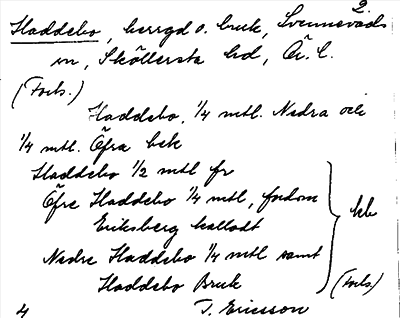 2.
Haddebo, herrgd o. bruk, Svennevads
sn, Sköllersta hd, Ör. l.
(Forts.)
Haddebo, 1/4 mtl. Nedra och
1/4 mtl. Öfra bsk
Haddebo 1/2 mtl fr
Öfre Haddebo 1/4 mtl, fordom
Eriksberg kalladt
Nedre Haddebo 1/4 mtl samt
Haddebo Bruk
(Forts)
4 T. Ericsson